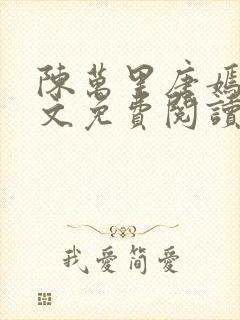 陳萬里唐嫣
文免費閱讀
我愛簡愛